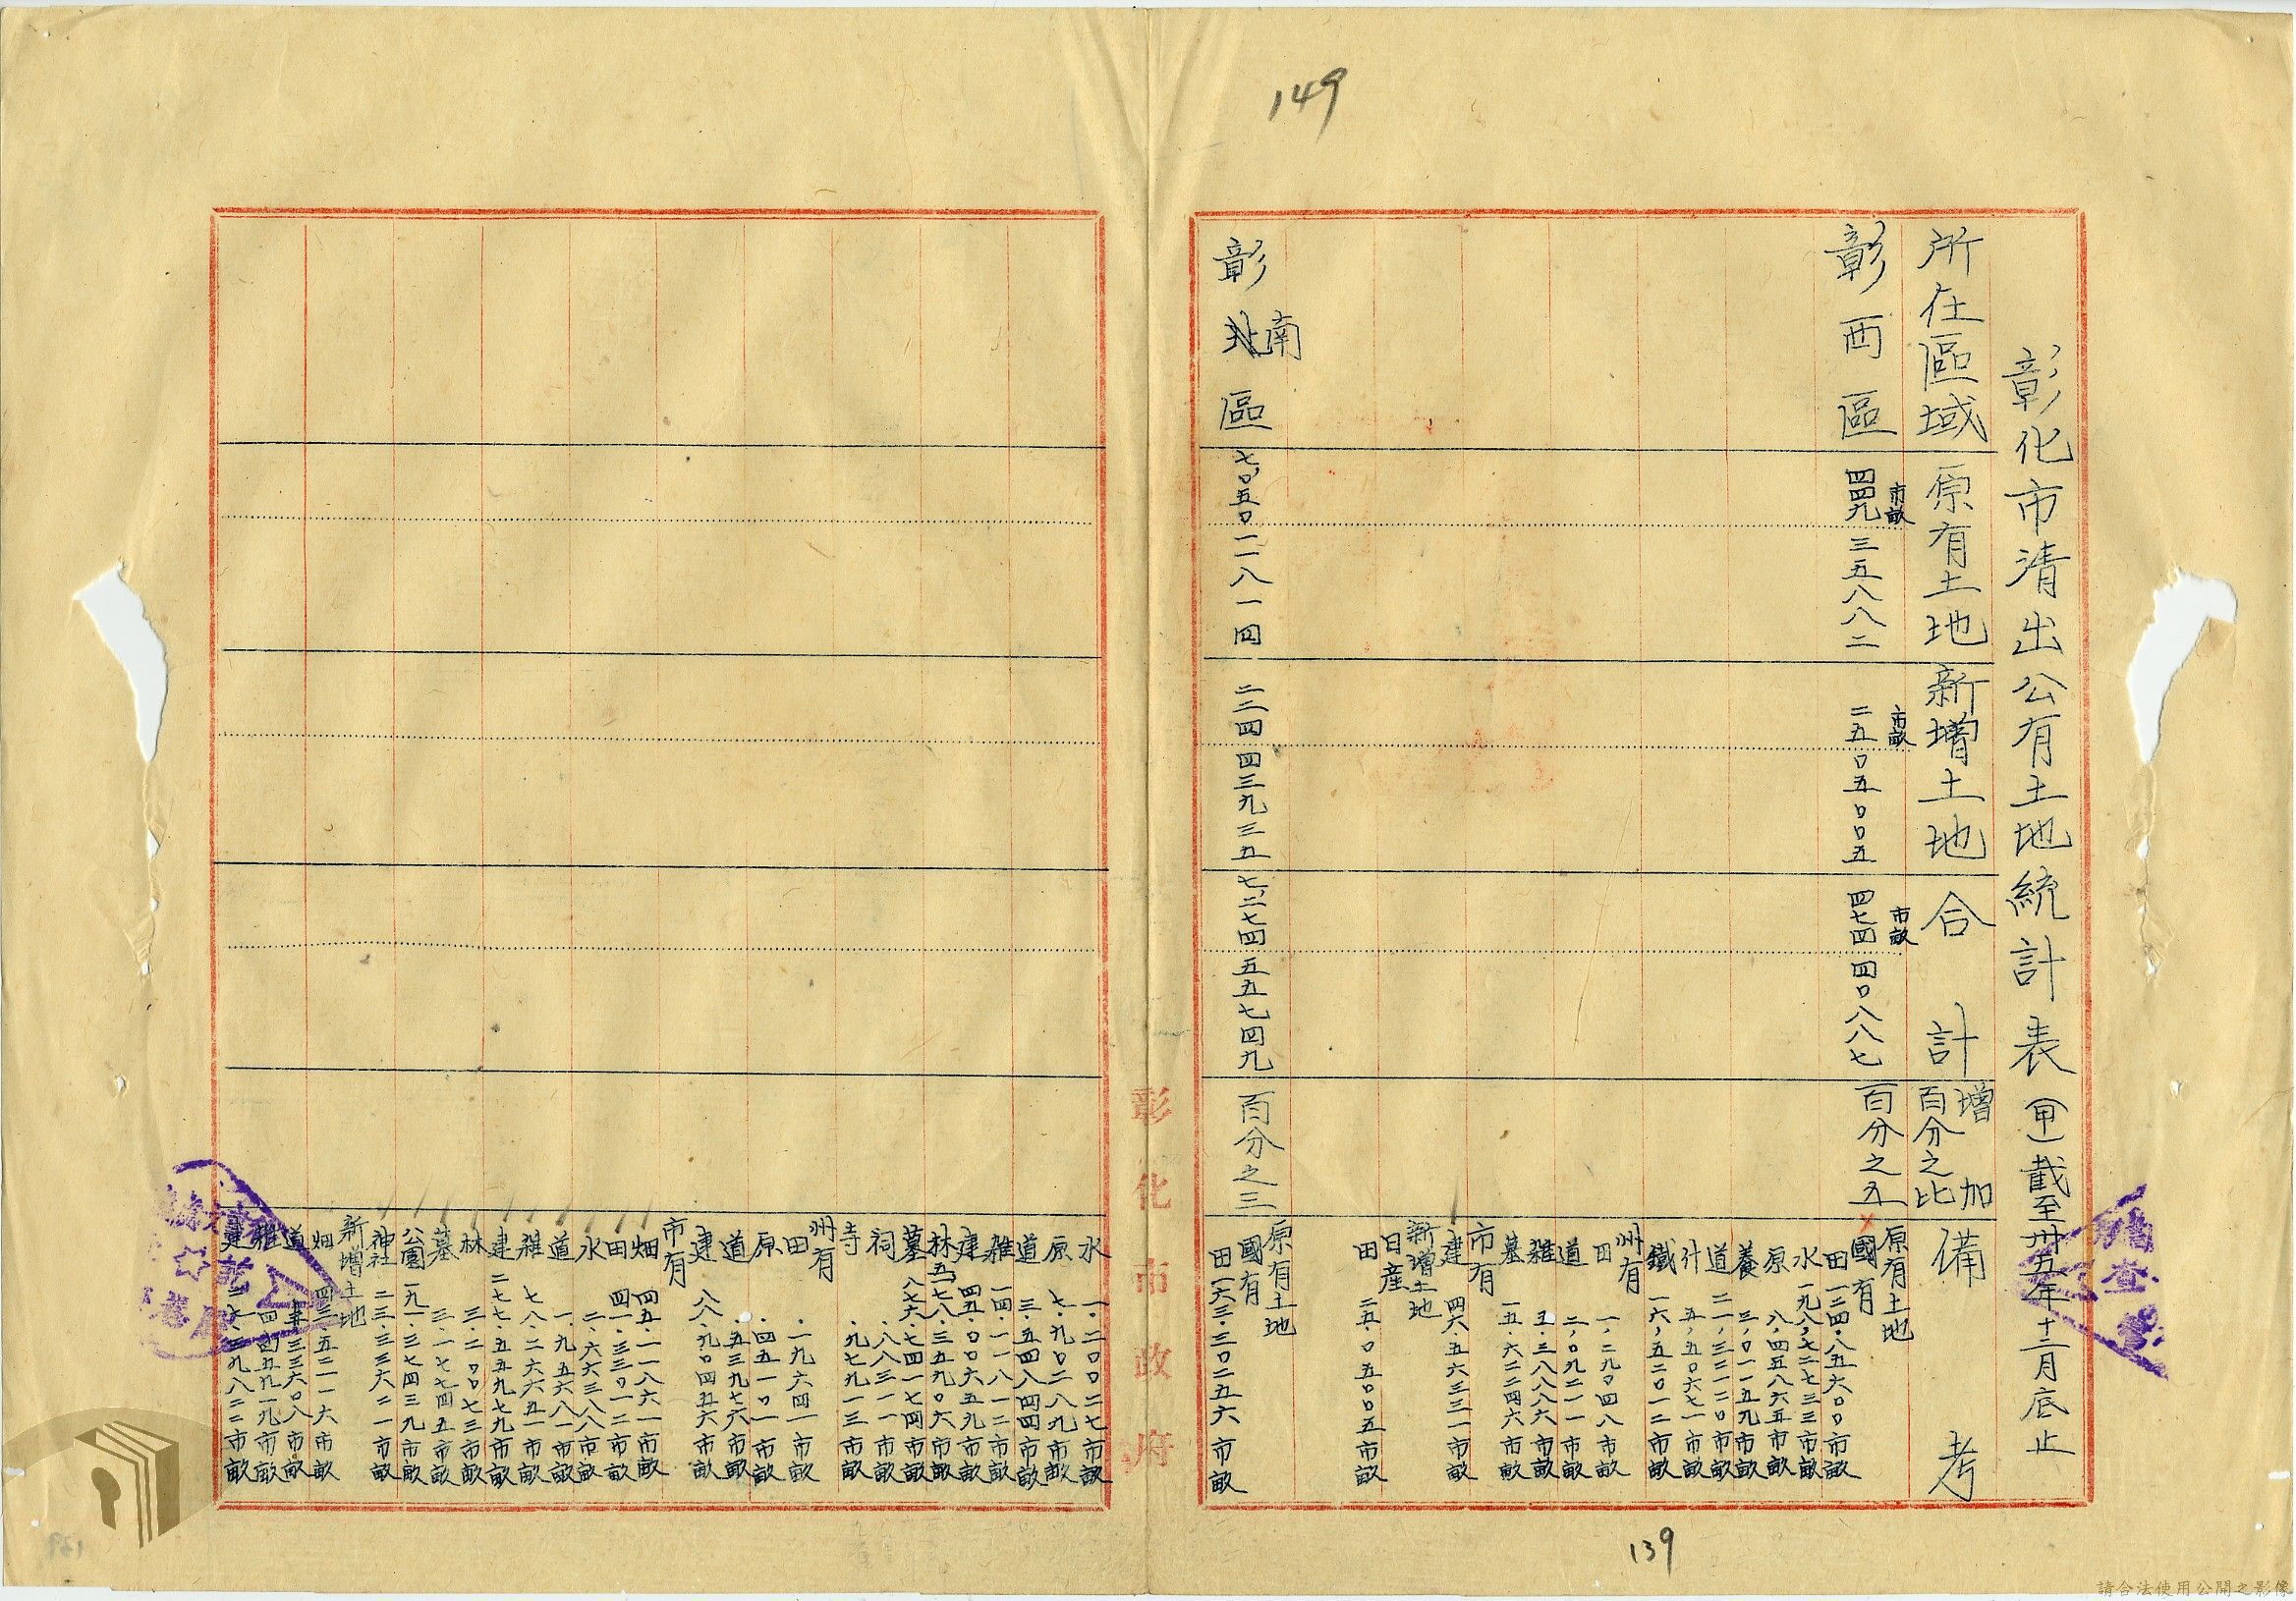 149
彰化市清出公有土地統計表(甲)截至卅五年十二月底止
所在區域
原有土地
新增土地
合計
增加
百分之比
備考
彰西區
市畝
四四九三五八八二
市畝
二五〇五〇〇五
市畝
四七四四〇八八七
百分之五
原有土地
國有
田一二四·八五六〇〇市畝
水一九八,七二七三三市畝
原八,四五八六五市畝
養三,〇一一五九市畝
道二一,三二一二〇市畝
计五,五〇六七一市畝
鐵一六,五二〇一二市畝
州有
田一,二九〇四八市畝
道二,〇九二一一市畝
雜五·三八八八六市畝
墓一五·六二二四六市畝
市有
建四六·五六三三一市畝
新增土地
日産
田二五·〇五〇〇五市畝
彰南區
七,〇五〇一一八一四
二二四四三九三五
七,二七四五五七四九
百分之三
原有土地
國有
田一六三·三〇二五六市畝
水一·二〇〇二七市畝
原七·九〇二八九市畝
道三·五四八四四市畝
雜一四·一一八一二市畝
建四五·〇〇六五九市畝
林五,一七八·三五九〇六市畝
墓八七六·七四一七四市畝
祠·八八三一一市畝
寺·九七九一三市畝
州有
田·一九六四一市畝
原·四五一〇一市畝
道·五三九七六市畝
建八八·九〇四五六市畝
市有
畑四五·一一八六一市畝
田四一·三三〇一二市畝
水二·六六三八八市畝
道一·九五六八一市畝
雜七八·二六六五一市畝
建二七七·五五九七九市畝
林三·二〇〇七三市畝
墓三·一七七四五市畝
公園一九一·三七四三九市畝
神社二三·三三六二一市畝
新增土地
畑四三·五二一一六市畝
彰化市政府
139
請合法使用公開之影像